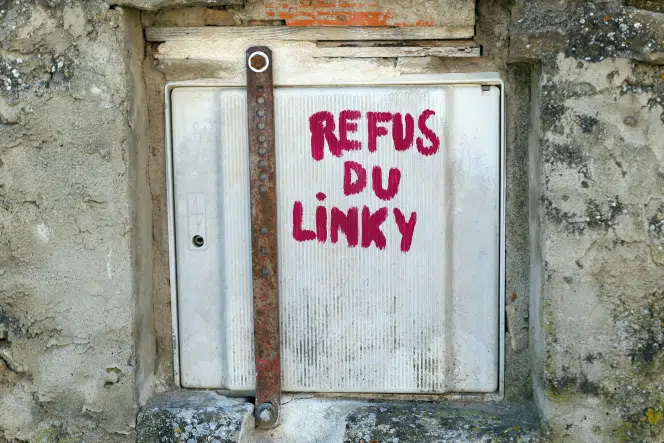 REFUS
DU
LiNKY